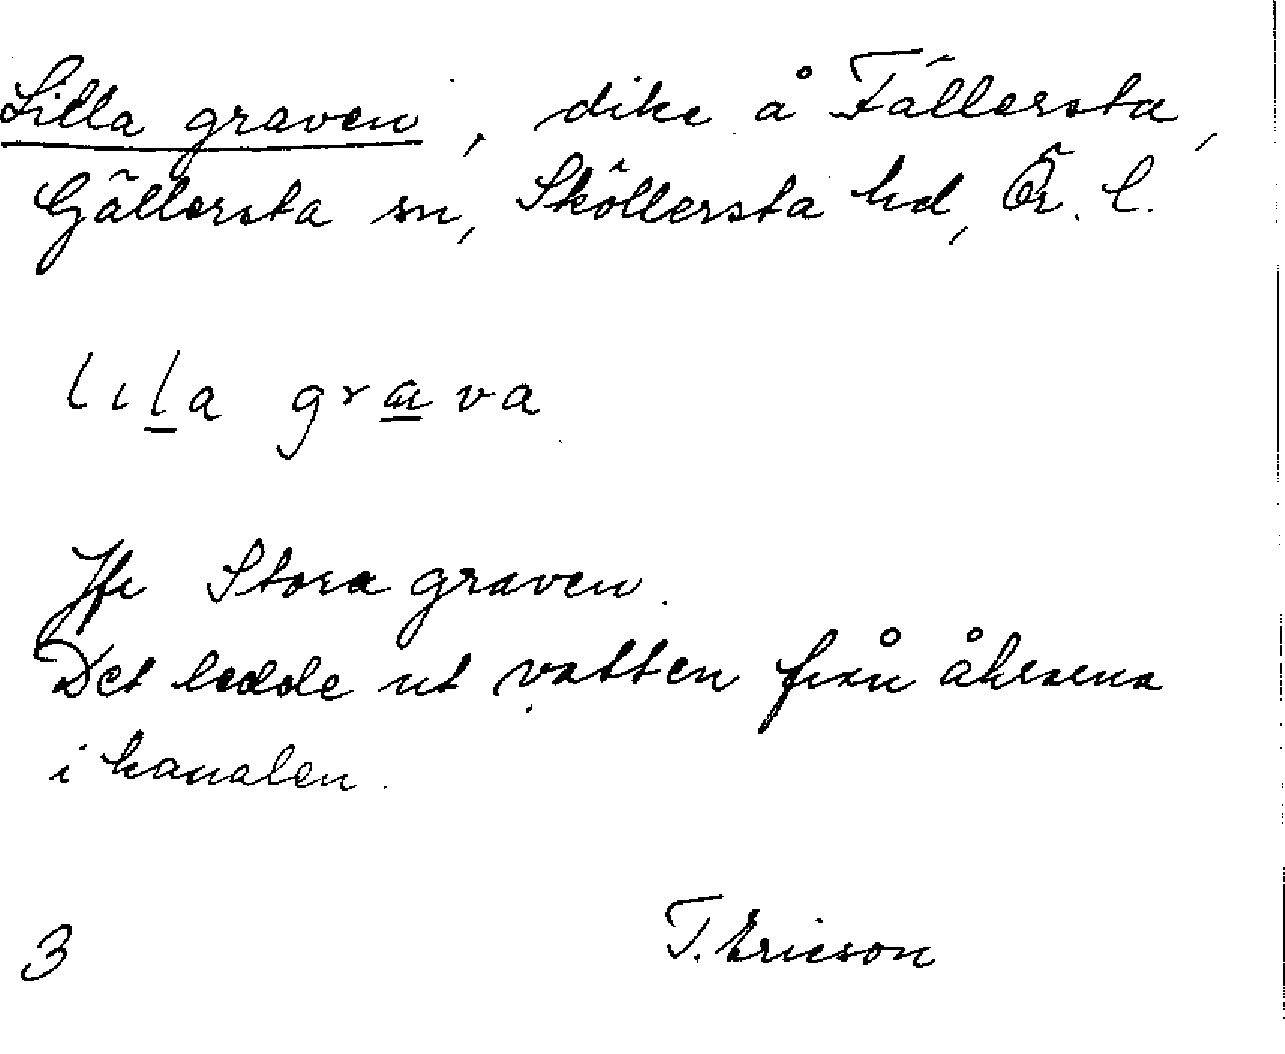 Lilla graven, dike å Fällersta,
Gällersta sn, Sköllersta hd, Ör. l.
lila grava
Jfr Stora graven.
Det ledde ut vatten från åkrarna
i kanalen.
3 T. Ericson